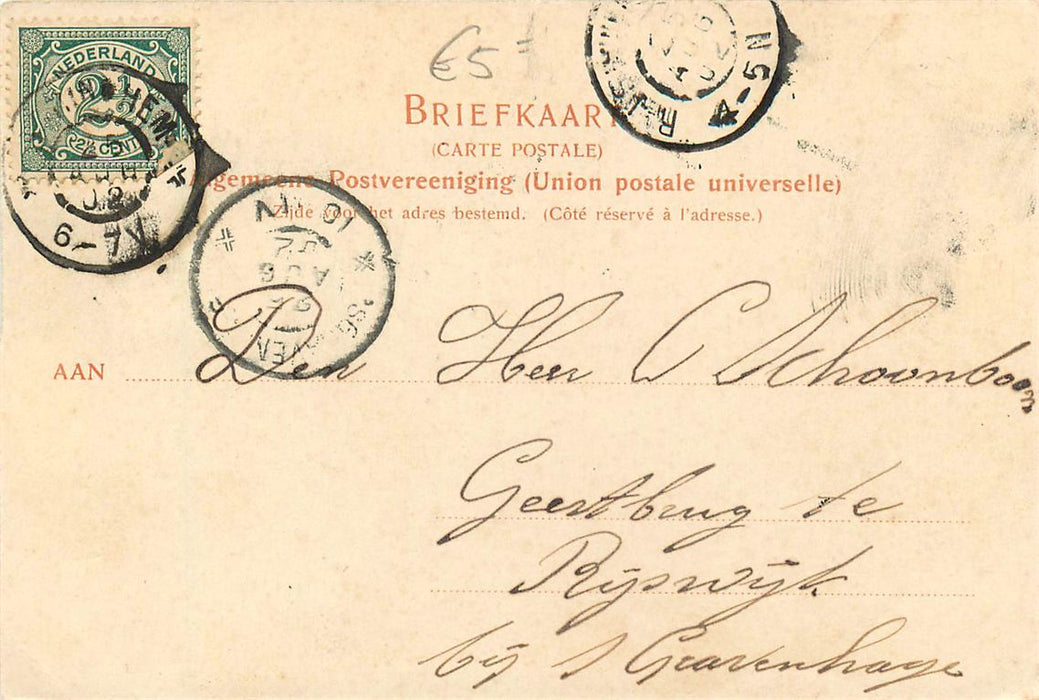 NEDERLAND
2½
2½ CENT
HEM
02
6-7
€5
AUG
02
4-5N
BRIEFKAART
(CARTE POSTALE)
Algemeene Postvereeniging (Union postale universelle)
Zijde voor het adres bestemd. (Côté réservé à l'adresse.)
AUG
AAN Den Heer C Schoonboom
Geestbrug te
Rijswijk
bij s Gravenhage